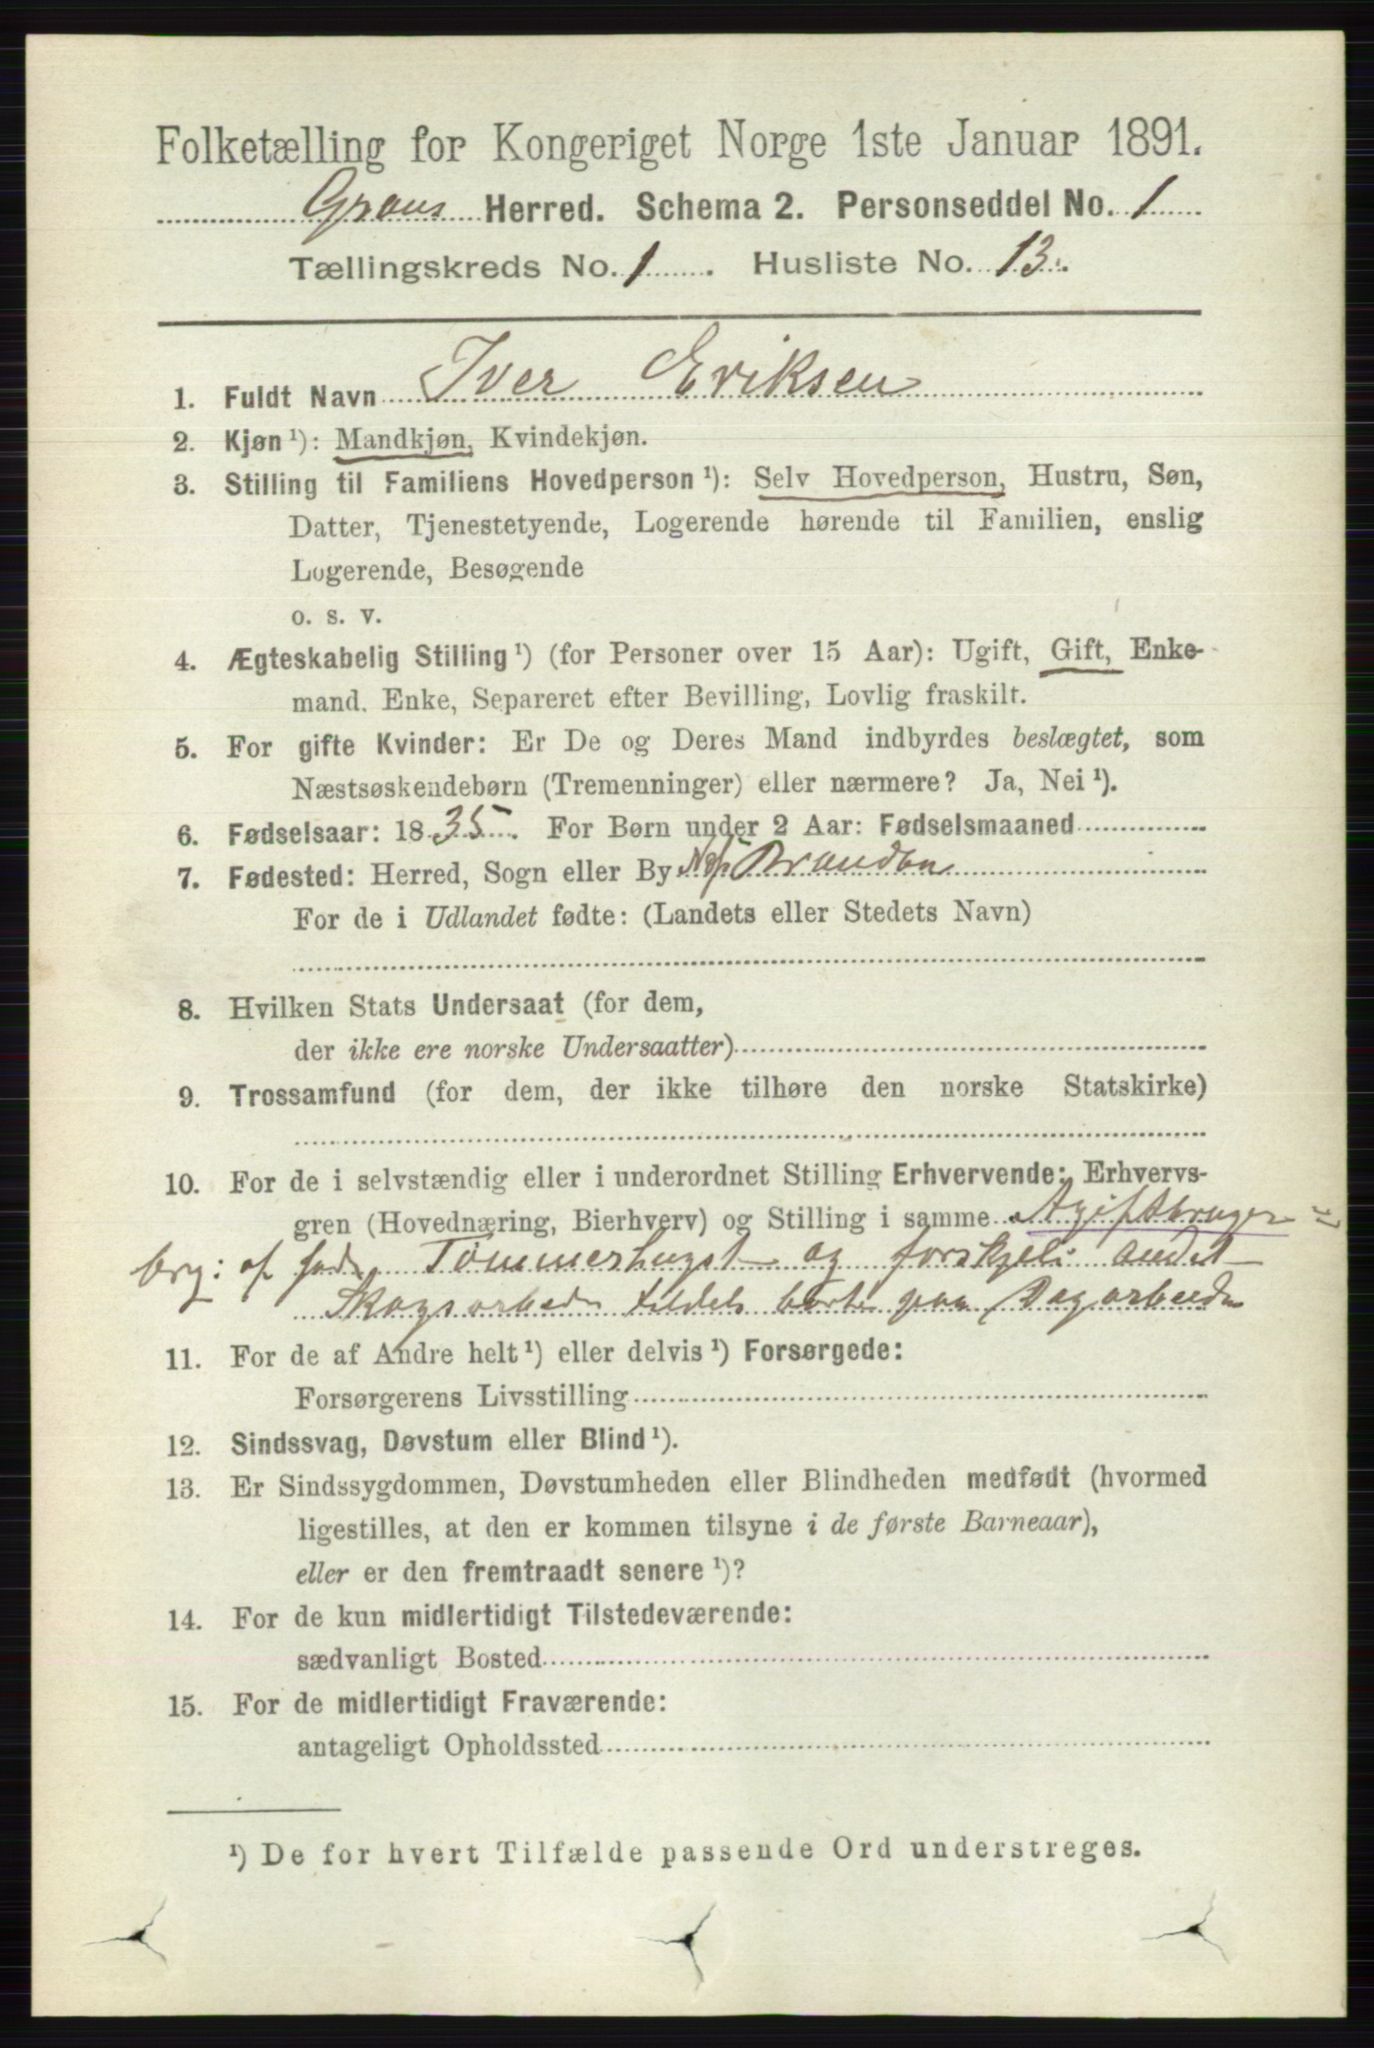 Folketælling for Kongeriget Norge 1ste Januar 1891.
Grans Herred. Schema 2. Personseddel No. 1
Tællingskreds No. 1. Husliste No. 13.
1. Fuldt Navn Iver Eriksen
2. Kjøn ¹): Mandkjøn, Kvindekjøn.
3. Stilling til Familiens Hovedperson ¹): Selv Hovedperson, Hustru, Søn,
Datter, Tjenestetyende, Logerende hørende til Familien, enslig
Logerende, Besøgende
o. s. v.
4. Ægteskabelig Stilling ¹) (for Personer over 15 Aar): Ugift, Gift, Enke-
mand, Enke, Separeret efter Bevilling, Lovlig fraskilt.
5. For gifte Kvinder: Er De og Deres Mand indbyrdes beslægtet, som
Næstsøskendebørn (Tremenninger) eller nærmere? Ja, Nei ¹).
6. Fødselsaar: 1835. For Børn under 2 Aar: Fødselsmaaned
7. Fødested: Herred, Sogn eller By Brandbu
For de i Udlandet fødte: (Landets eller Stedets Navn)
8. Hvilken Stats Undersaat (for dem,
der ikke ere norske Undersaatter)
9. Trossamfund (for dem, der ikke tilhøre den norske Statskirke)
10. For de i selvstændig eller i underordnet Stilling Erhvervende: Erhvervs-
gren (Hovednæring, Bierhverv) og Stilling i samme
af Tømmerhugst og forskjel: andet
Skogsarbeide tildels borte paa Dagarbeide
11. For de af Andre helt ¹) eller delvis ¹) Forsørgede:
Forsørgerens Livsstilling
12. Sindssvag, Døvstum eller Blind ¹).
13. Er Sindssygdommen, Døvstumheden eller Blindheden medfødt (hvormed
ligestilles, at den er kommen tilsyne i de første Barneaar),
eller er den fremtraadt senere ¹)?
14. For de kun midlertidigt Tilstedeværende:
sædvanligt Bosted
15. For de midlertidigt Fraværende:
antageligt Opholdssted
¹) De for hvert Tilfælde passende Ord understreges.